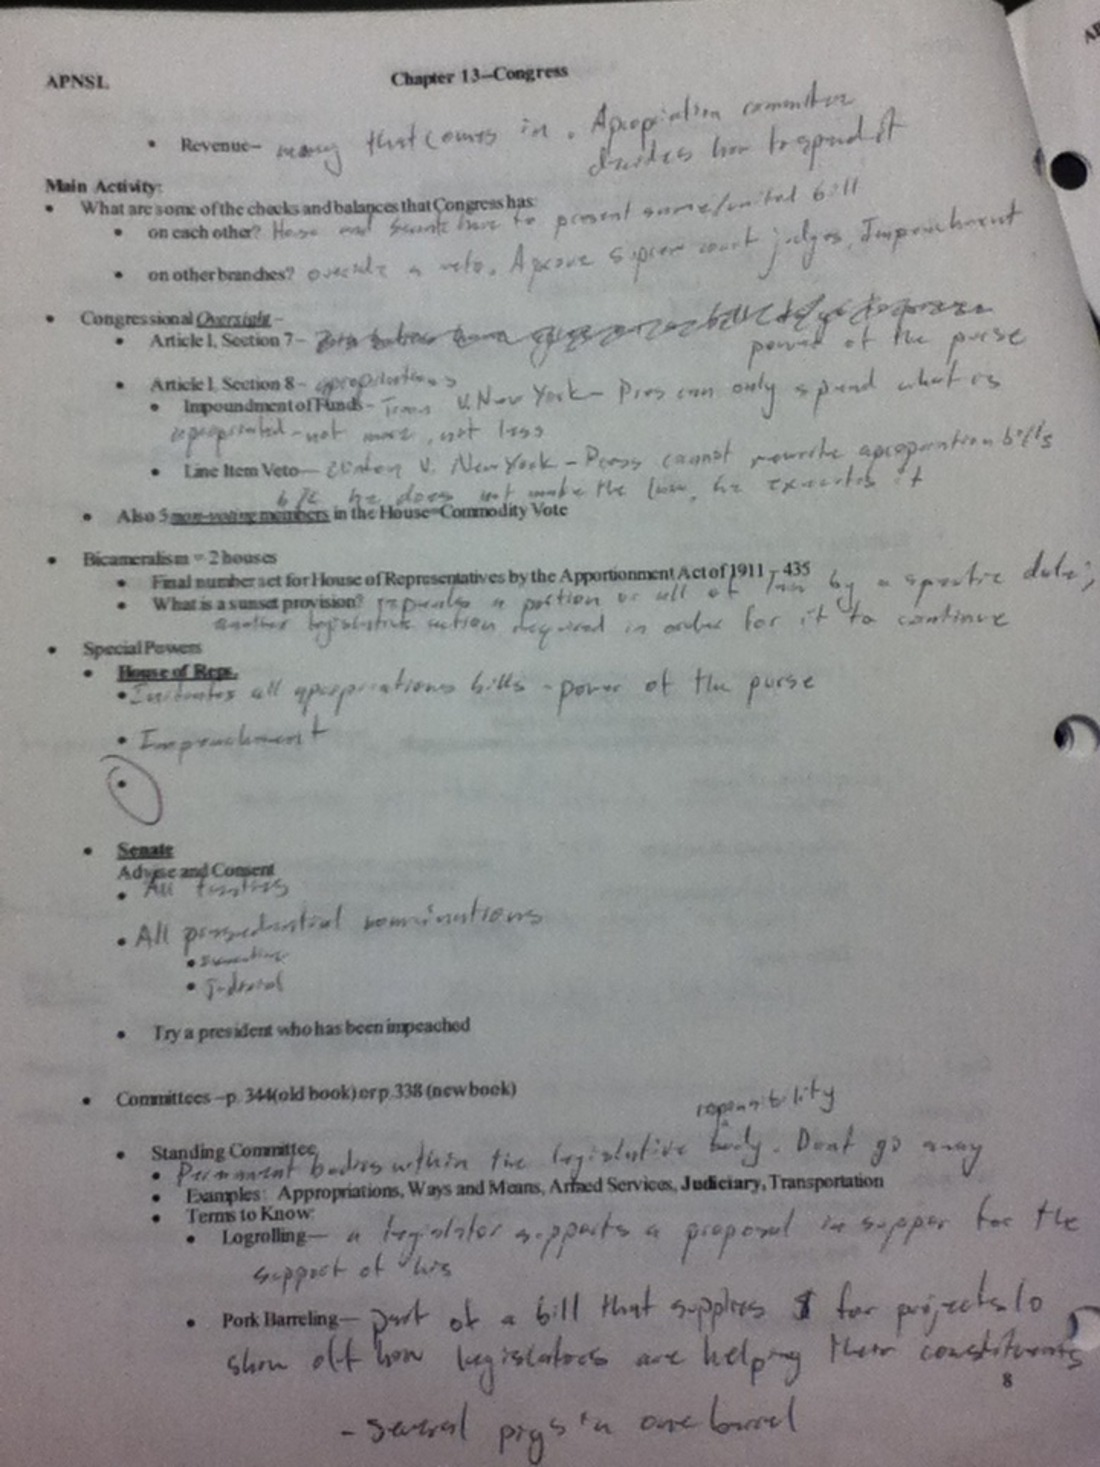 APNSL
Chapter 13–Congress
• Revenue– money that comes in. Apropriation committee
decides how to spend it
Main Activity:
• What are some of the checks and balances that Congress has:
• on each other? House and Senate have to present same/united bill
• on other branches? override a veto. Aprove suprem court judges, Impeachment
• Congressional Oversight –
• Article I, Section 7 –
power of the purse
• Article I, Section 8 – apropriations
• Impoundment of Funds – Train V. New York – Pres can only spend what is
apropriated - not more, not less
• Line Item Veto— Clinton V. New York – Press cannot rewrite apropration bills
b/c he does not make the law, he executes it
• Also 5 non-voting members in the House=Commodity Vote
• Bicameralism = 2 houses
• Final number set for House of Representatives by the Apportionment Act of 1911 – 435
• What is a sunset provision? repeals a portion or all of law by a specific date;
another legislative action required in order for it to continue
• Special Powers
• House of Reps.
• all apropriations bills - power of the purse
• Impeachment
•
• Senate
Advise and Consent
• All
• All presedential nominations
• Executive
• Judicial
• Try a president who has been impeached
• Committees –p. 344(old book) or p. 338 (new book)
responsibility
• Standing Committee
• Permanent bodies within the legislative body. Dont go away
• Examples: Appropriations, Ways and Means, Armed Services, Judiciary, Transportation
• Terms to Know:
• Logrolling— a legislator supports a proposal in suppor for the
support of his
• Pork Barreling— part of a bill that supplies $ for projects to
show off how legislators are helping their constituents
8
- several pigs in one barrel